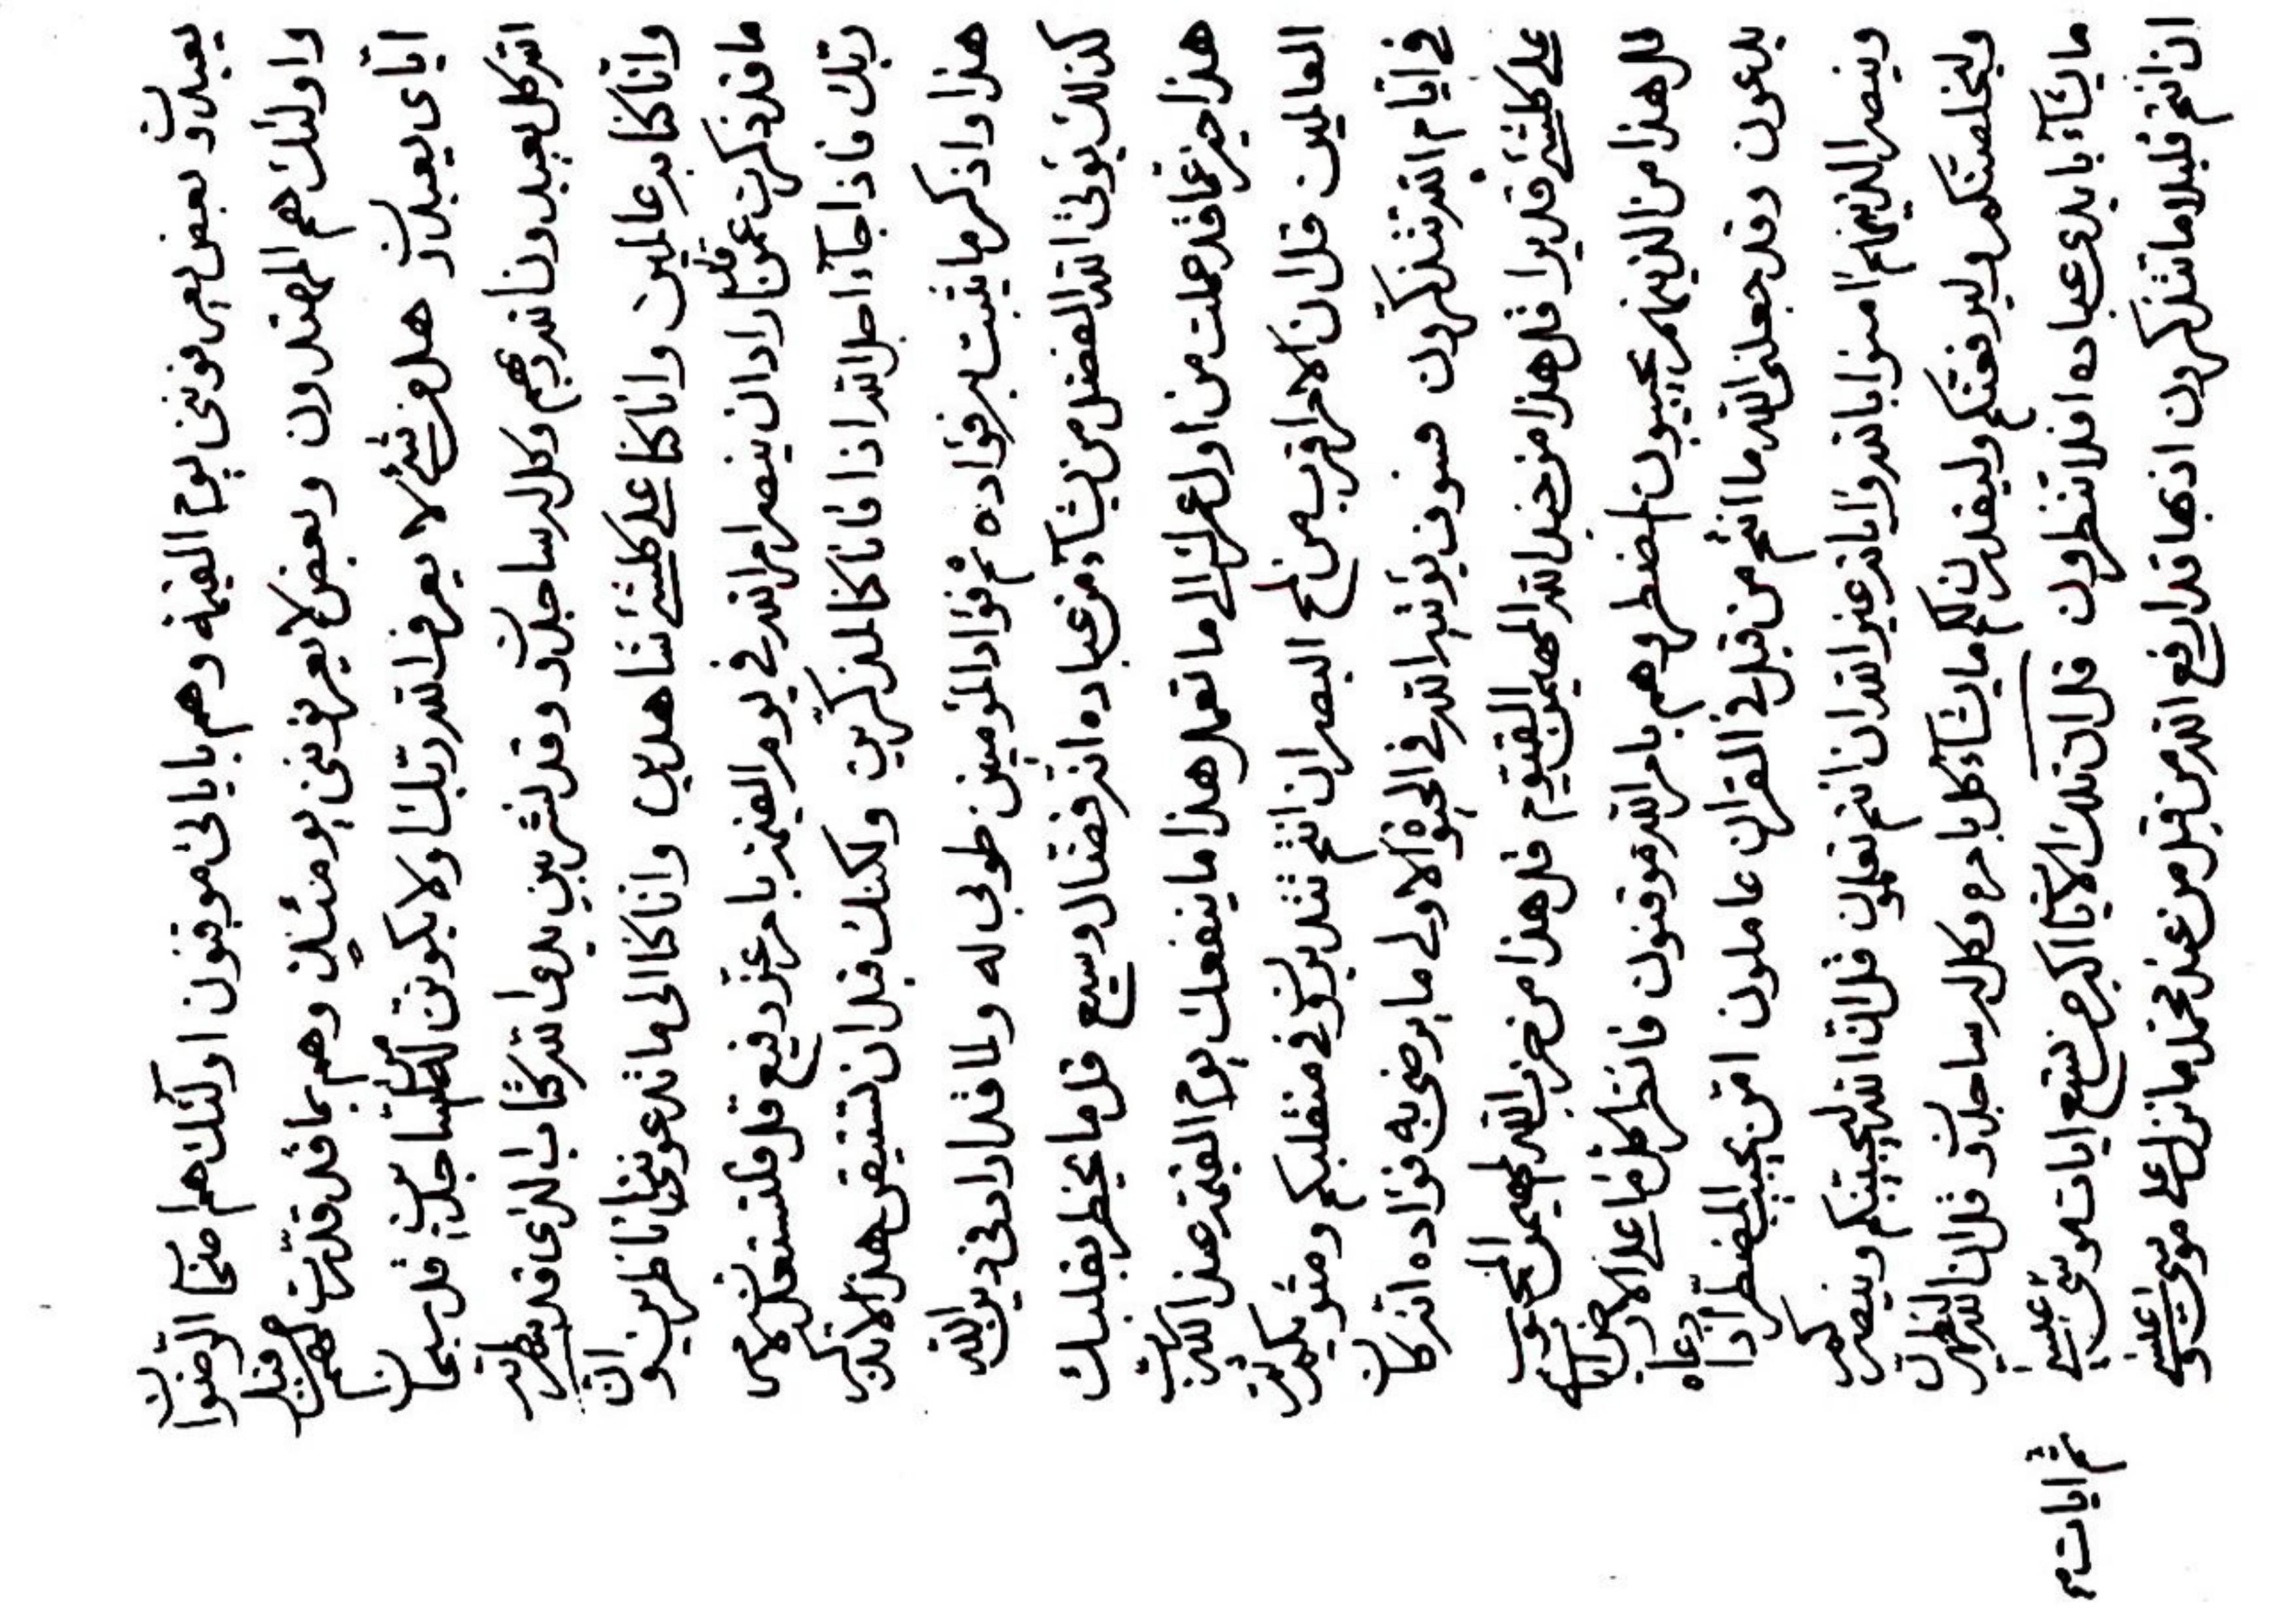 يعبدون وبعض يعرفونني يوم القيمة وهم باياتي موقنون اولئك هم اصحاب الرضوان
واولئك هم المهتدون وبعض لا يعرفونني يومئذ وهم بما قد قدرت لهم من قبل
اياي يعبدون هل من شيء لا يعرف الله ربك او لا يكونن له لمن الساجدين قل سبحان الله
انه كل يعبدون الله ربهم وكل له ساجدون وقد نشر بين يدي الله كتاب الذي قد سطر به
وانا كنا به عالمين وانا كنا على كل شيء شاهدين وانا كنا الى ما تدعونني اناظرين وان
ما قد ذكرت عمن قد اراد ان ينصر امر الله في يوم القيمة بامر عز رفيع قل فلتستعدن لامر
ربك فاذا جاء اجل الله اذا فانا كنا لمذكرين ولكنك قبل ان تستيقن هذا لا تذكر
هذا واذكر ما يثبت به فؤاده ثم فؤاد المؤمنين طوبى له ولما قد اراد في دين الله
كذلك يؤتي الله الفضل من يشاء من عباده انه فضال وسيع قل ما يخطر بقلبك
هذا خير عما قد عملت من اول عمرك الى ما تعمل هذا ما ينفعك يوم القيمة عند الله رب
العالمين قل ان الامر اقرب من لمح البصر ان انتم تتدبرون في منقلبكم ومثويكم ثم
في ايام الله تتذكرون سوف يؤتيه الله في الحيوة الاولى ما يرضى به فؤاده انه كان
على كل شيء قديرا قل هذا من جند الله المهيمن القيوم قل هذا من حزب الله المهيمن المحبوب
قل هذا من الذينهم يجيبون المضطر وهم بامر الله موقنون فانظر كل ما على الارض انهم
يدعون وقد جعلني الله ما انتم من قبل في القران عاملون امن يجيب المضطر اذا دعاه
وينصر الذينهم امنوا بالله واياته غير الله ان انتم تعلمون قل ان الله ليجيبنكم وينصرنكم
وليخلصنكم وليرفعنكم وليقدرن لكم ما يشاء كل بامره وكل له ساجدون قل ان الله ليظهرن
ما يشاء بايدي عباده افلا تنظرون قل ان تلك الايات اكبر من تسع ايات موسى عليه
ثم ايات م
ان انتم قليلا ما تتذكرون اذ بها قد ارفع الله من قبل من عند محمد ما نزل على موسى وعليه